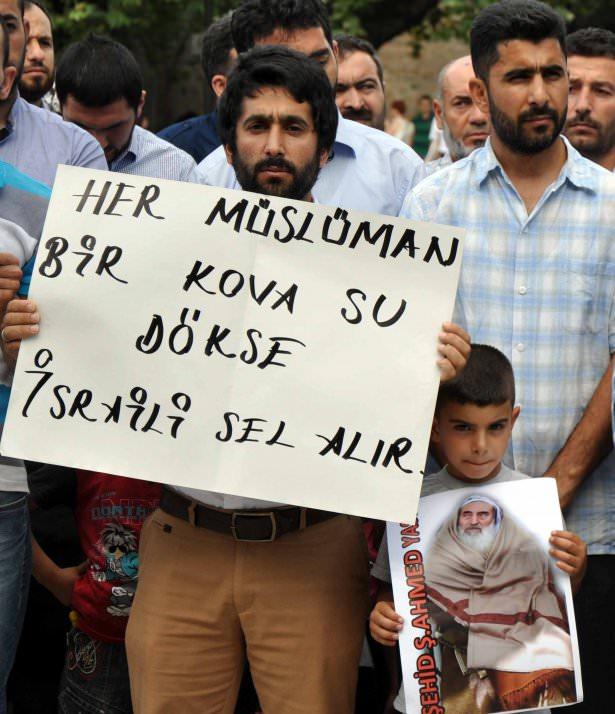 HER MÜSLÜMAN
BİR KOVA SU
DÖKSE
İSRAİLİ SEL ALIR.
ŞEHİD Ş.AHMED YA